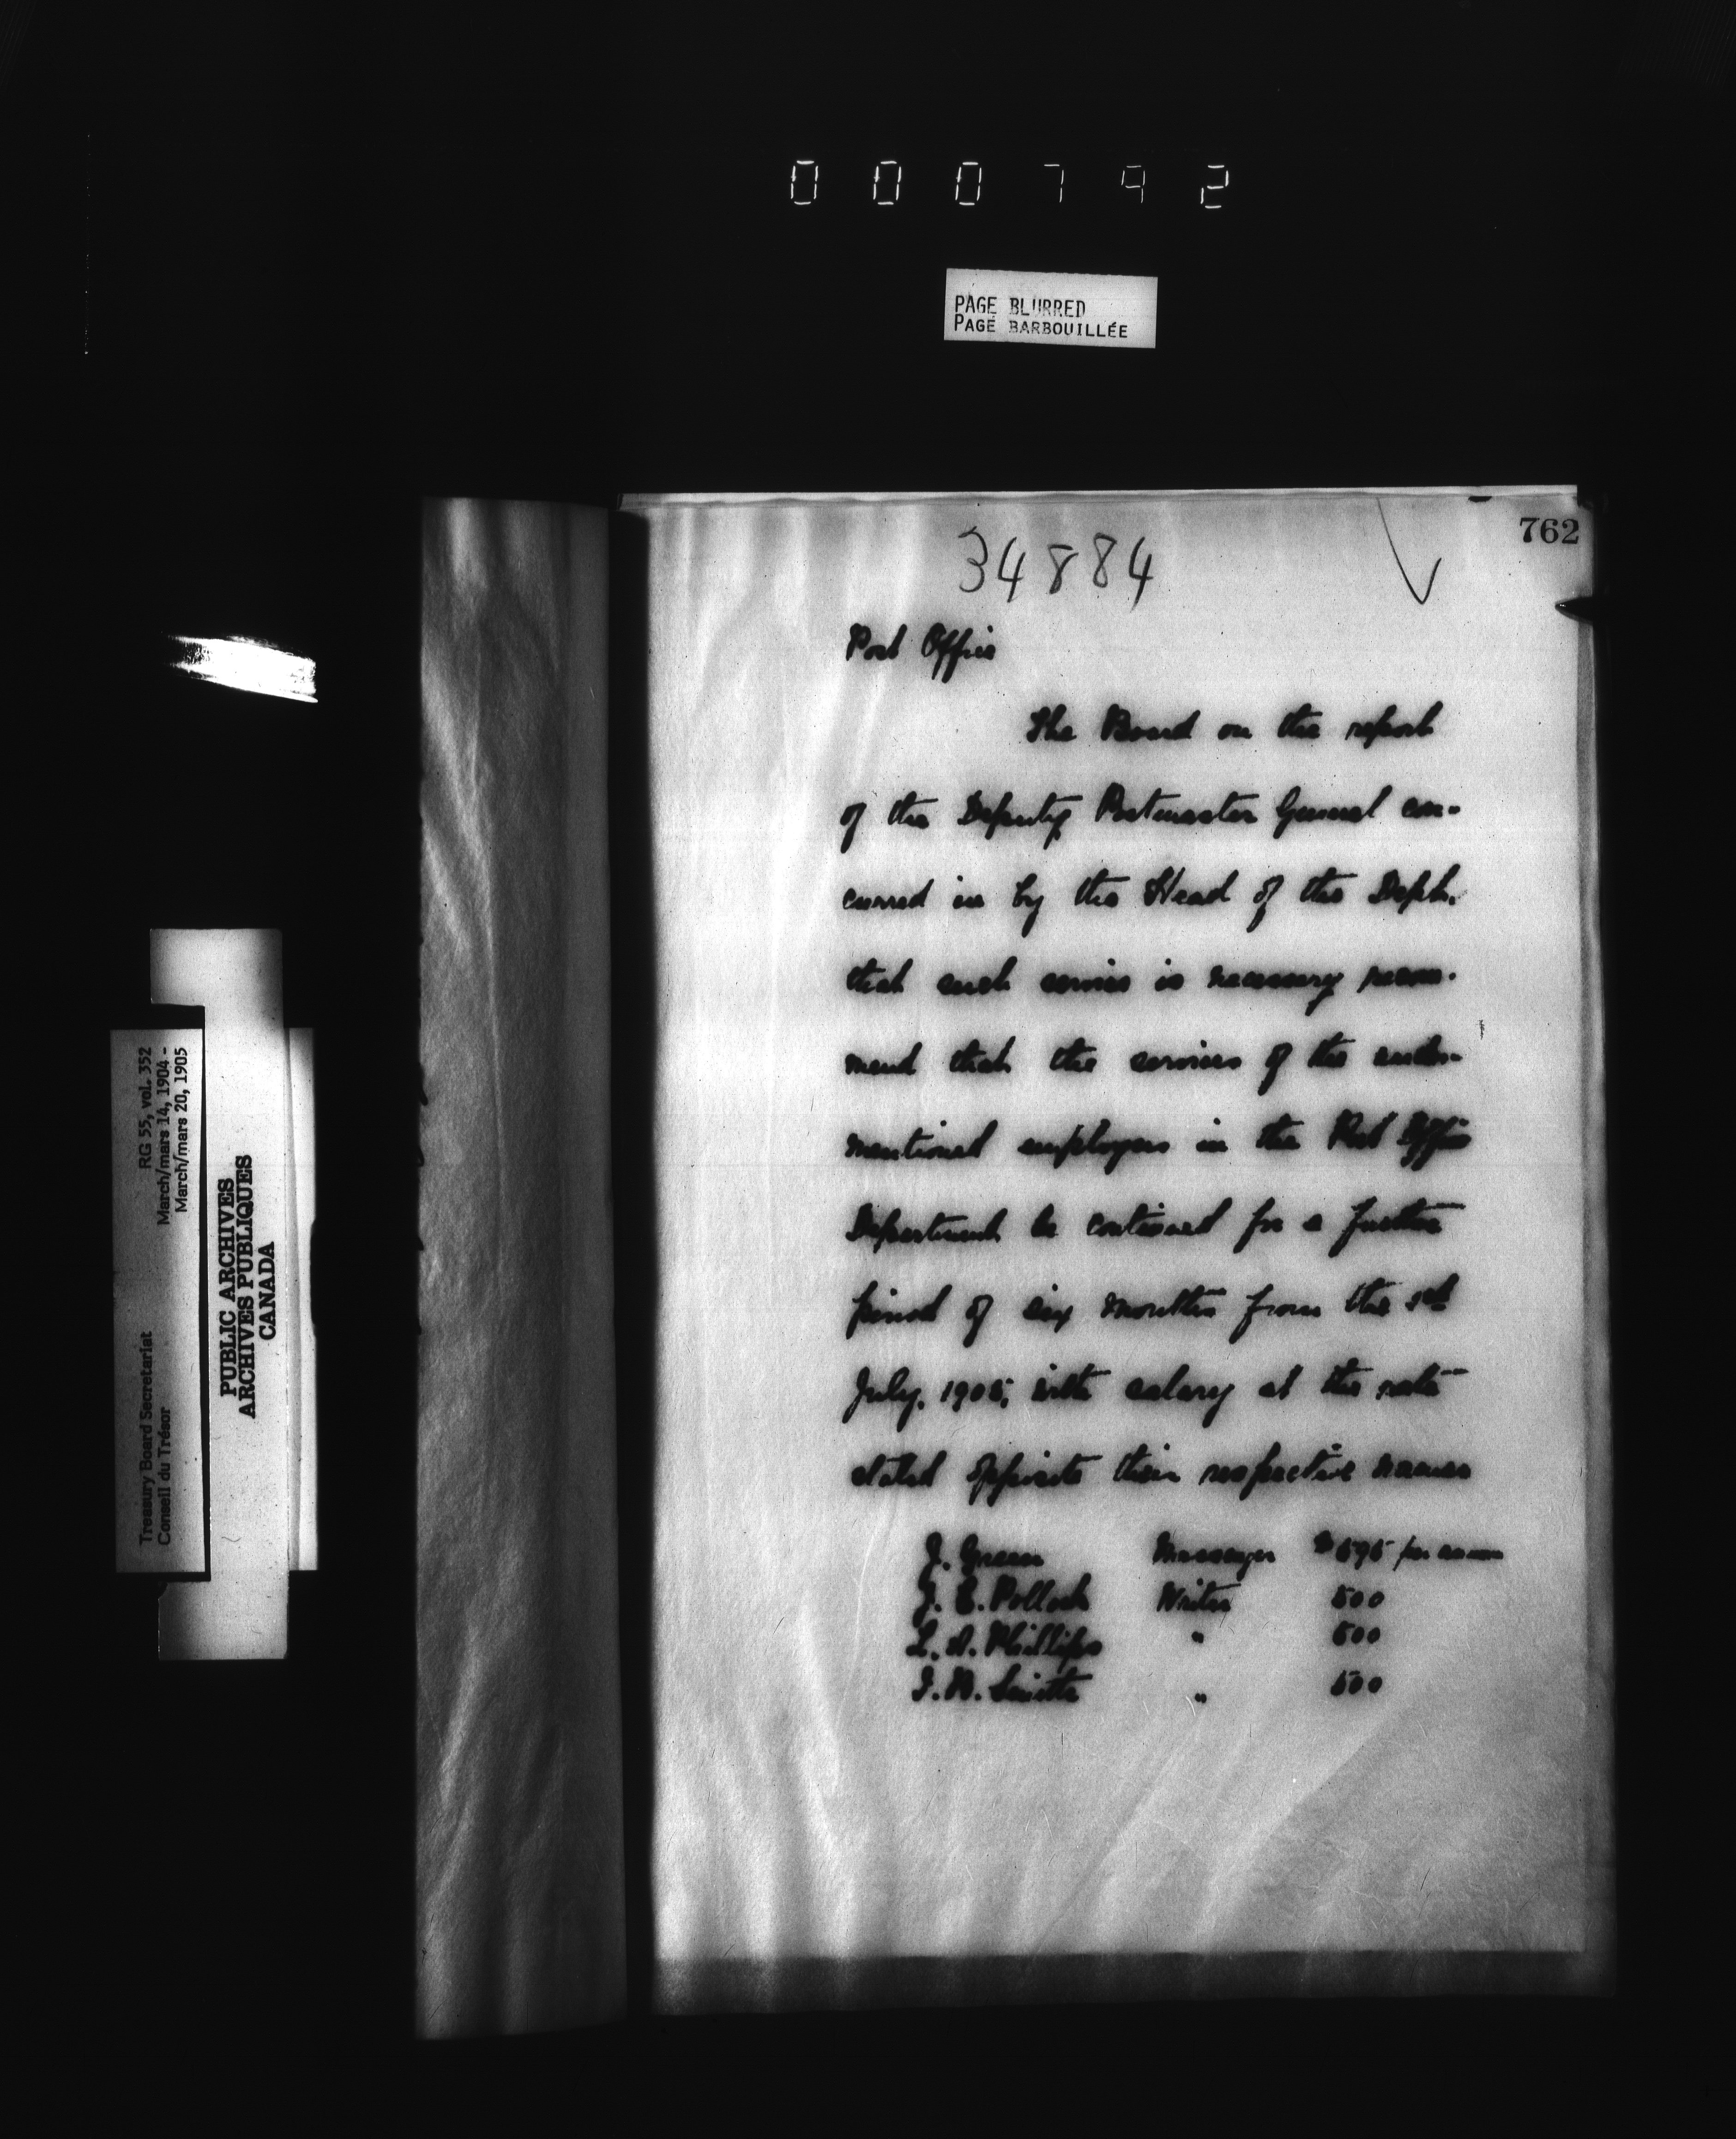 000792
PAGE BLURRED
PAGE BARBOUILLÉE
762
34884
Post Office
The Board on the report
of the Deputy Postmaster General con-
curred in by the Head of the Dept.
that such service is necessary recom-
mend that the services of the under-
mentioned employees in the Post Office
Department be continued for a further
period of six months from the 1st
July, 1905, with salary at the rate
stated opposite their respective names
J. Green Messenger $ 595 per annum
J. E. Pollock Writer 500
L. A. Phillips " 500
J. N. Smith " 500
RG 55, vol. 352
March/mars 14, 1904 -
March/mars 20, 1905
Treasury Board Secretariat
Conseil du Trésor
PUBLIC ARCHIVES
ARCHIVES PUBLIQUES
CANADA